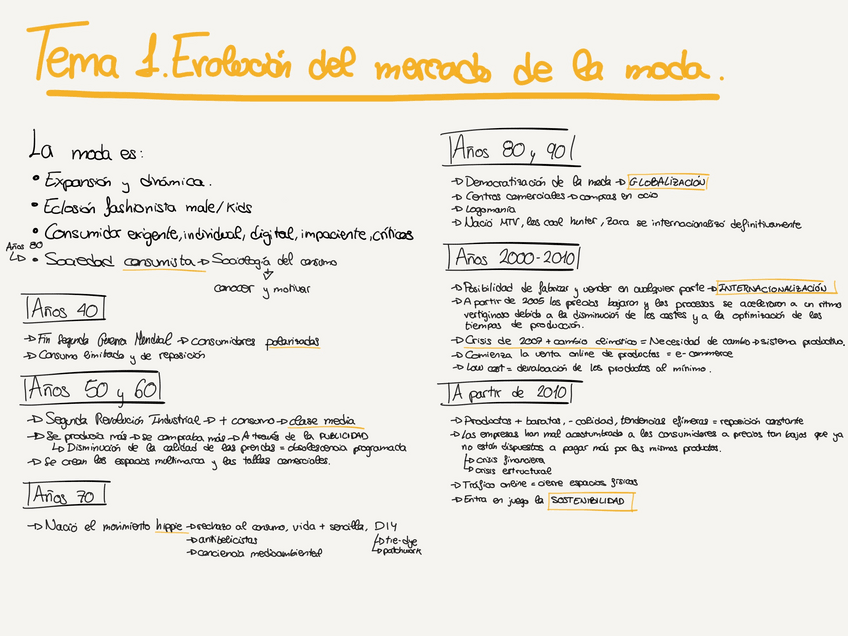 Tema 1. Evolución del mercado de la moda.
La moda es:
• Expansión y dinámica.
• Eclosión fashionista male/kids
• Consumidor exigente, individual, digital, impaciente, críticos
Años 80
↳ • Sociedad consumista → Sociología del consumo
↓
conocer y motivar
Años 40
→ Fin Segunda Guerra Mundial → consumidores polarizados
→ Consumo limitado y de reposición
Años 50 y 60
→ Segunda Revolución Industrial → + consumo → clase media
→ Se producía más → se compraba más → A través de la PUBLICIDAD
↳ Disminución de la calidad de las prendas = obsolescencia programada
→ Se crean los espacios multimarca y las tallas comerciales.
Años 70
→ Nació el movimiento hippie → rechazo al consumo, vida + sencilla, DIY
→ antibelicistas
→ conciencia medioambiental
↳ tie-dye
↳ patchwork
Años 80 y 90
→ Democratización de la moda → GLOBALIZACIÓN
→ Centros comerciales → compras en ocio
→ Logomanía
→ Nació MTV, los cool hunter, Zara se internacionalizó definitivamente
Años 2000-2010
→ Posibilidad de fabricar y vender en cualquier parte → INTERNACIONALIZACIÓN
→ A partir de 2005 los precios bajaron y los procesos se aceleraron a un ritmo
vertiginoso debido a la disminución de los costes y a la optimización de los
tiempos de producción.
→ Crisis de 2007 + cambio climático = Necesidad de cambio → sistema productivo.
→ Comienza la venta online de productos = e-commerce
→ Low cost = devaluación de los productos al mínimo.
A partir de 2010
→ Productos + baratos, - calidad, tendencias efímeras = reposición constante
→ Las empresas han mal acostumbrado a los consumidores a precios tan bajos que ya
no están dispuestos a pagar más por los mismos productos.
↳ crisis financiera
↳ crisis estructural
→ Tráfico online = cierre espacios físicos
→ Entra en juego la SOSTENIBILIDAD